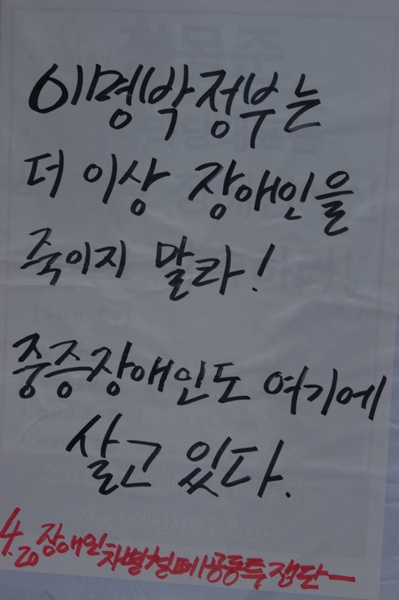 이명박정부는
더 이상 장애인을
죽이지 말라!
중증장애인도 여기에
살고 있다.
4.20 장애인차별철폐공동투쟁단